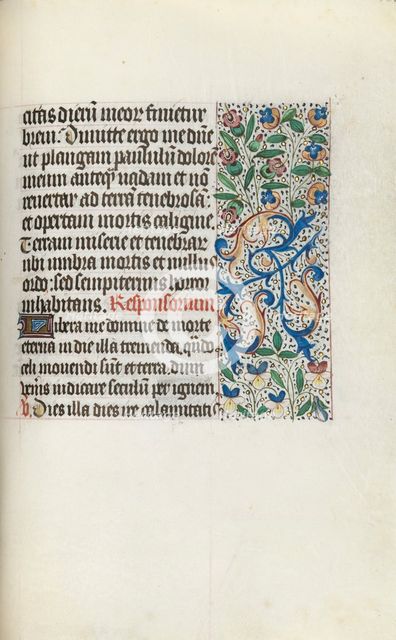 citas dierū meorz finietur
brevi. Dimitte ergo me dñe
ut plangam paululū dolorē
meum anteq̄ uadam et nō
reuertar ad terrā tenebrosā:
et opertam mortis caligine
Terram miserie et tenebrarz
ubi umbra mortis et nullus
ordo: sed sempiternus horror
inhabitans. Responsorium
Libera me domine de morte
eterna in die illa tremenda, qn̄do
celi mouendi sūt et terra. dum
veneris iudicare seculum per ignem
v. Dies illa dies ire calamitatis